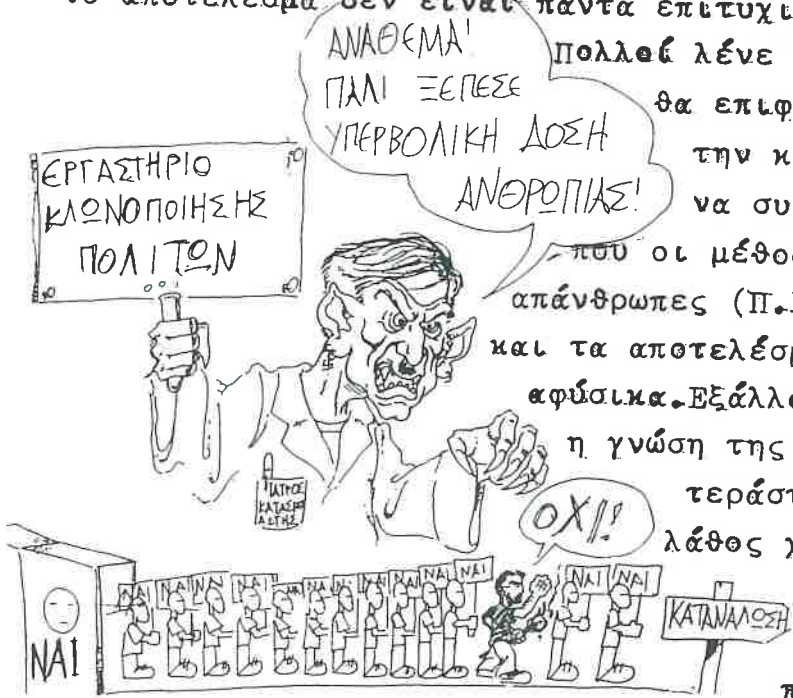 το αποτέλεσμα δεν είναι πάντα επιτυχι
Πολλοί λένε
θα επιφ
την κ
να συ
που οι μέθοδ
απάνθρωπες (Π.
και τα αποτελέσμ
αφύσικα.Εξάλλο
η γνώση της
τεράστ
λάθος χ
π
ΑΝΑΘΕΜΑ!
ΠΑΛΙ ΞΕΠΕΣΕ
ΥΠΕΡΒΟΛΙΚΗ ΔΟΣΗ
ΑΝΘΡΩΠΙΑΣ!
ΕΡΓΑΣΤΗΡΙΟ
ΚΛΩΝΟΠΟΙΗΣΗΣ
ΠΟΛΙΤΩΝ
ΙΑΤΡΟΣ
ΚΑΤΑΣΚΕΥ
ΑΣΤΗΣ
ΟΧΙ!!
ΝΑΙ
ΝΑΙ ΝΑΙ ΝΑΙ ΝΑΙ ΝΑΙ ΝΑΙ ΝΑΙ ΝΑΙ ΝΑΙ ΝΑΙ ΝΑΙ ΝΑΙ
ΚΑΤΑΝΑΛΩΣΗ